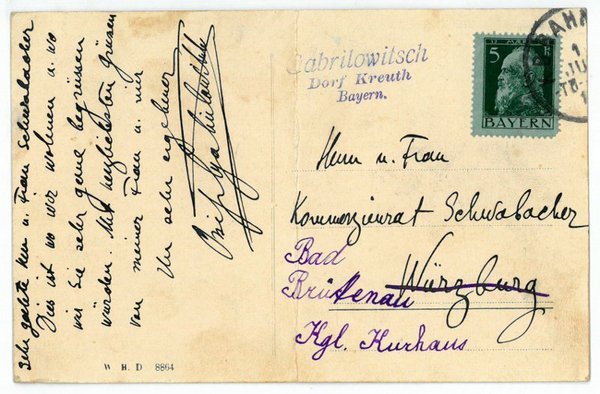 Sehr geehrte Herr u. Frau Schwabacher
Dies ist wo wir wohnen u. wo
wir Sie sehr gerne begrüssen
würden. Mit herzlichsten Grüssen
von meiner Frau u. mir
Ihr sehr ergebener
Ossip Gabrilowitsch
W. H. D 8864
Gabrilowitsch
Dorf Kreuth
Bayern.
5
BAYERN
Herrn u. Frau
Kommerzienrat Schwabacher
Würzburg
Bad
Brückenau
Kgl. Kurhaus